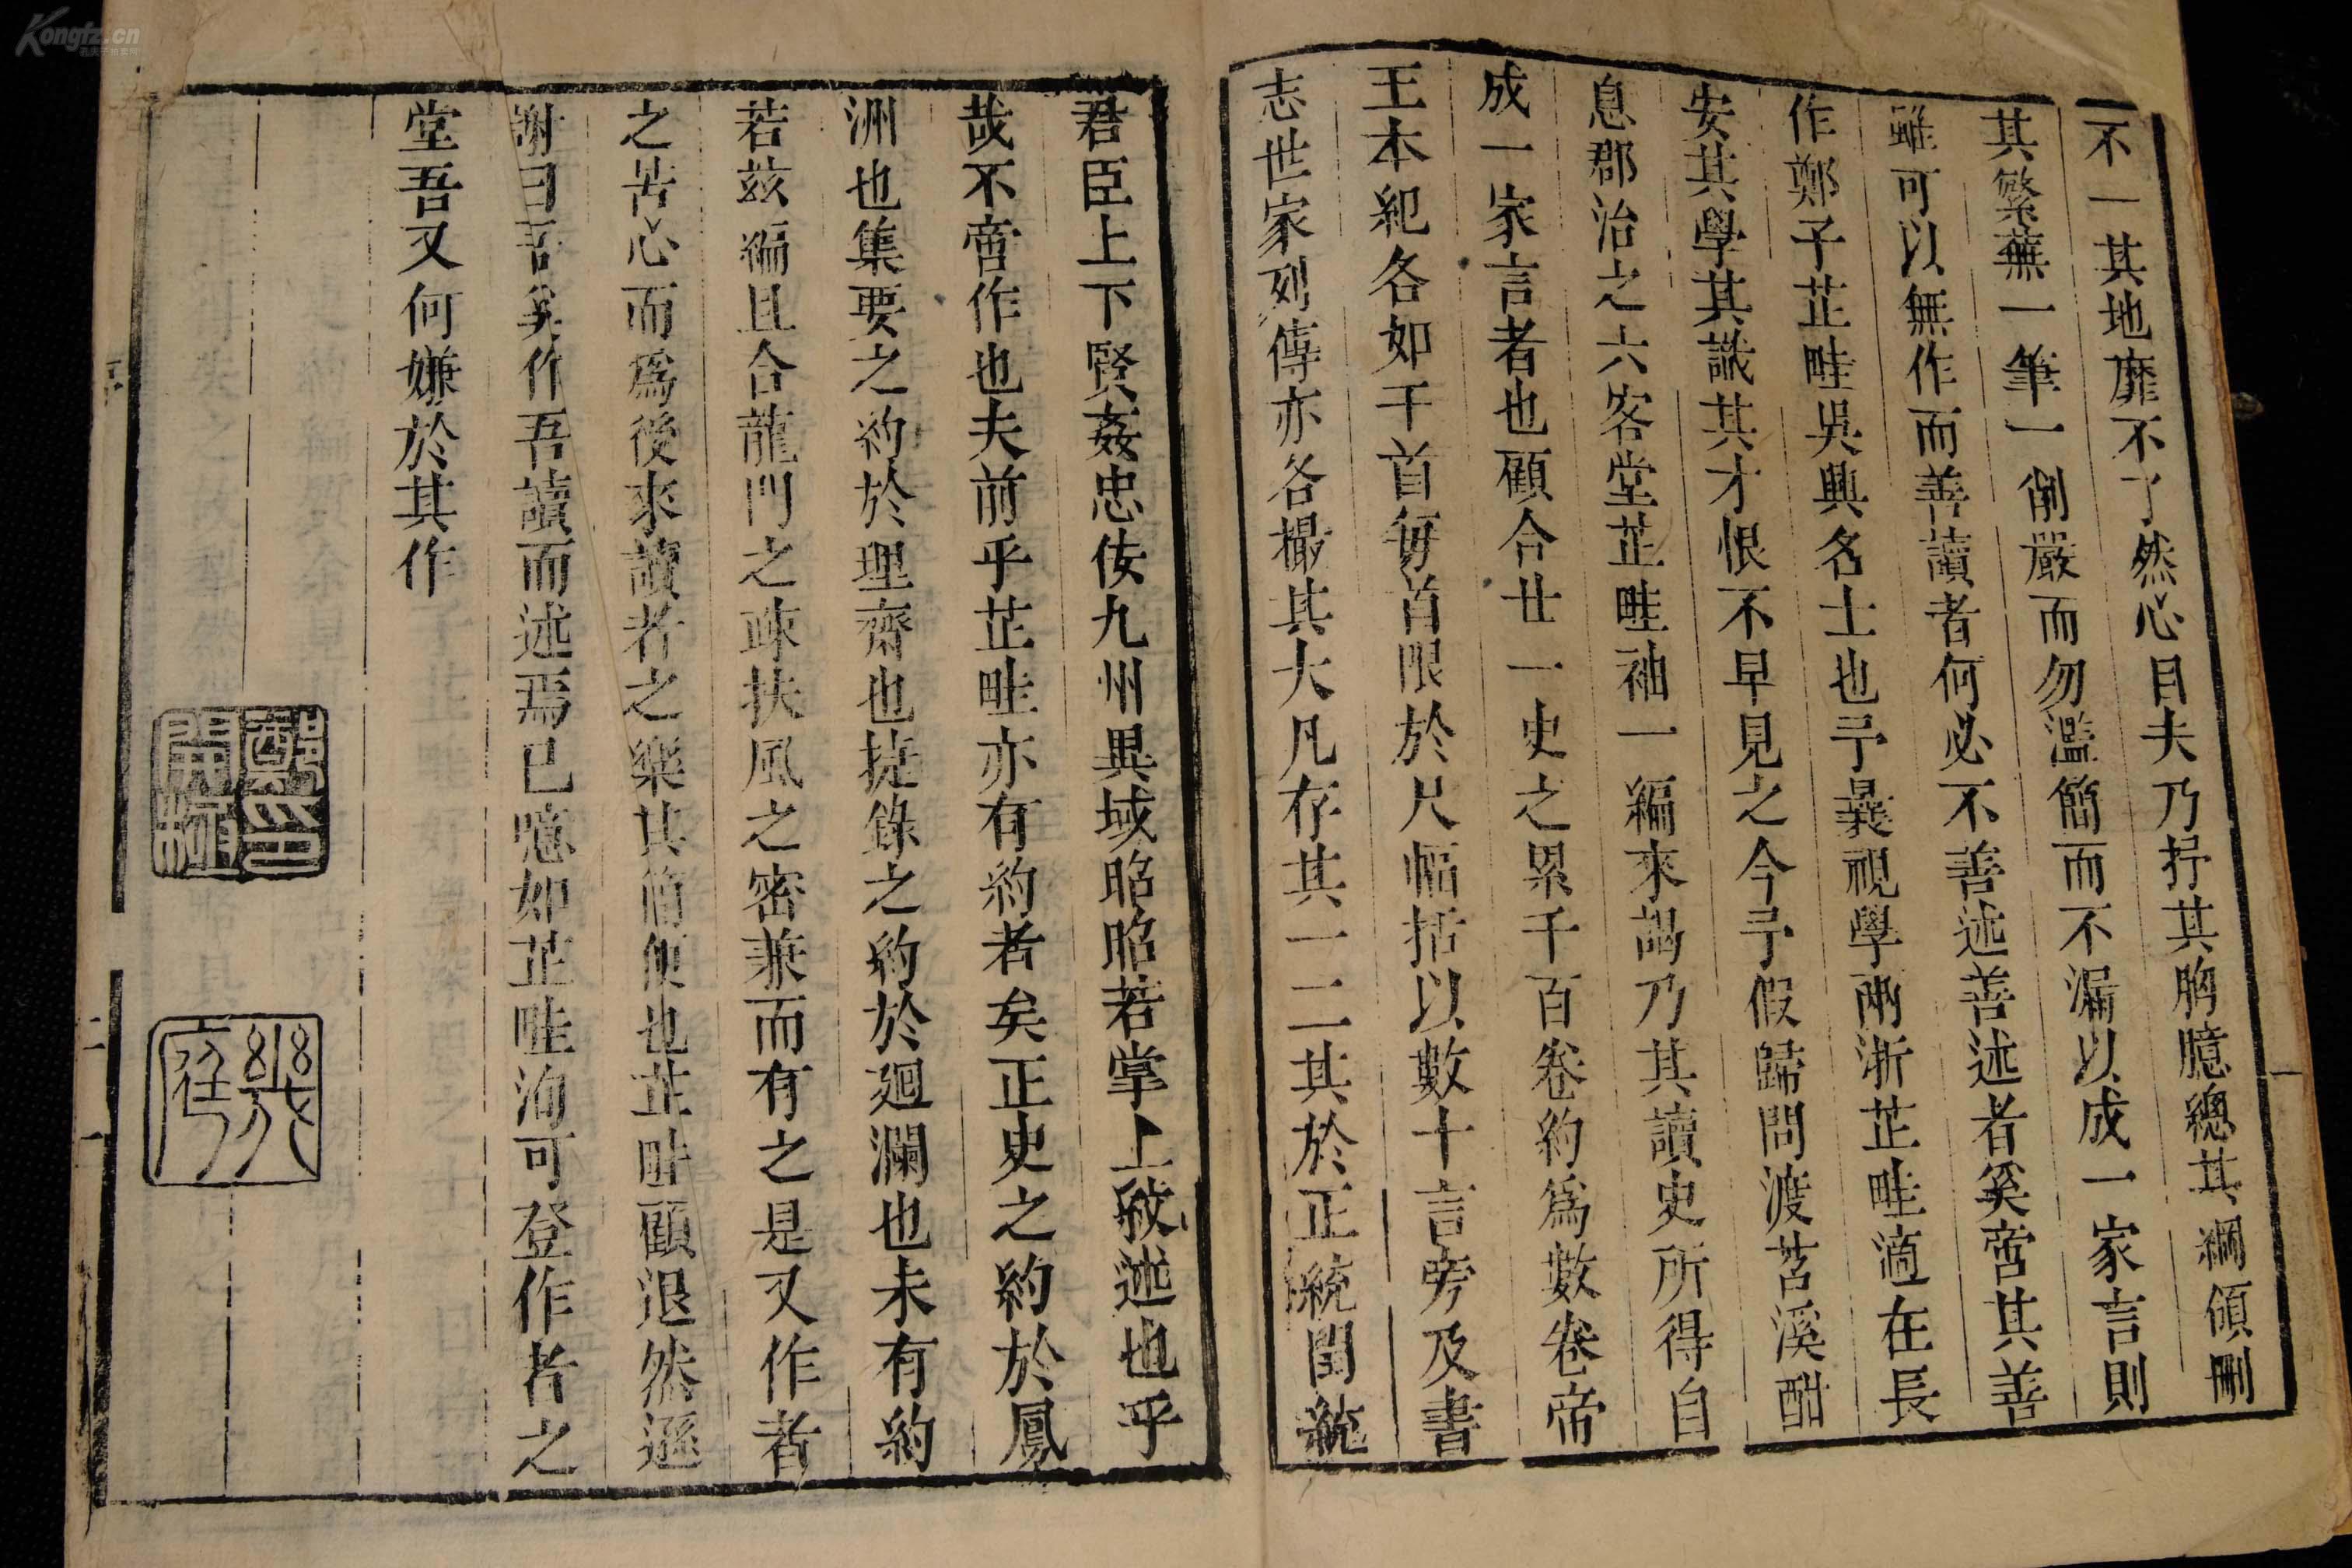 不一其地靡不了然心目夫乃抒其胸臆總其綱領刪
其繁蕪一筆一削嚴而勿濫簡而不漏以成一家言則
雖可以無作而善讀者何必不善述善述者奚啻其善
作鄭子芷畦吳興名士也予曩視學兩浙芷畦適在長
安其學其識其才恨不早見之今予假歸問渡苕溪酣
息郡治之六客堂芷畦袖一編來謁乃其讀史所得自
成一家言者也顧合廿一史之累千百卷約為數卷帝
王本紀各如干首每首限於尺幅括以數十言旁及書
志世家列傳亦各撮其大凡存其一二其於正統閏統
君臣上下賢姦忠佞九州異域昭昭若掌上紋述也乎
哉不啻作也夫前乎芷畦亦有約者矣正史之約於鳳
洲也集要之約於理齋也捷錄之約於廻瀾也未有約
若茲編且合龍門之疎扶風之密兼而有之是又作者
之苦心而為後來讀者之樂其簡便也芷畦顧退然遜
謝曰吾奚作吾讀而述焉已噫如芷畦洵可登作者之
堂吾又何嫌於其作
序
二
一
鄭印開極
幾庭
Kongfz.cn